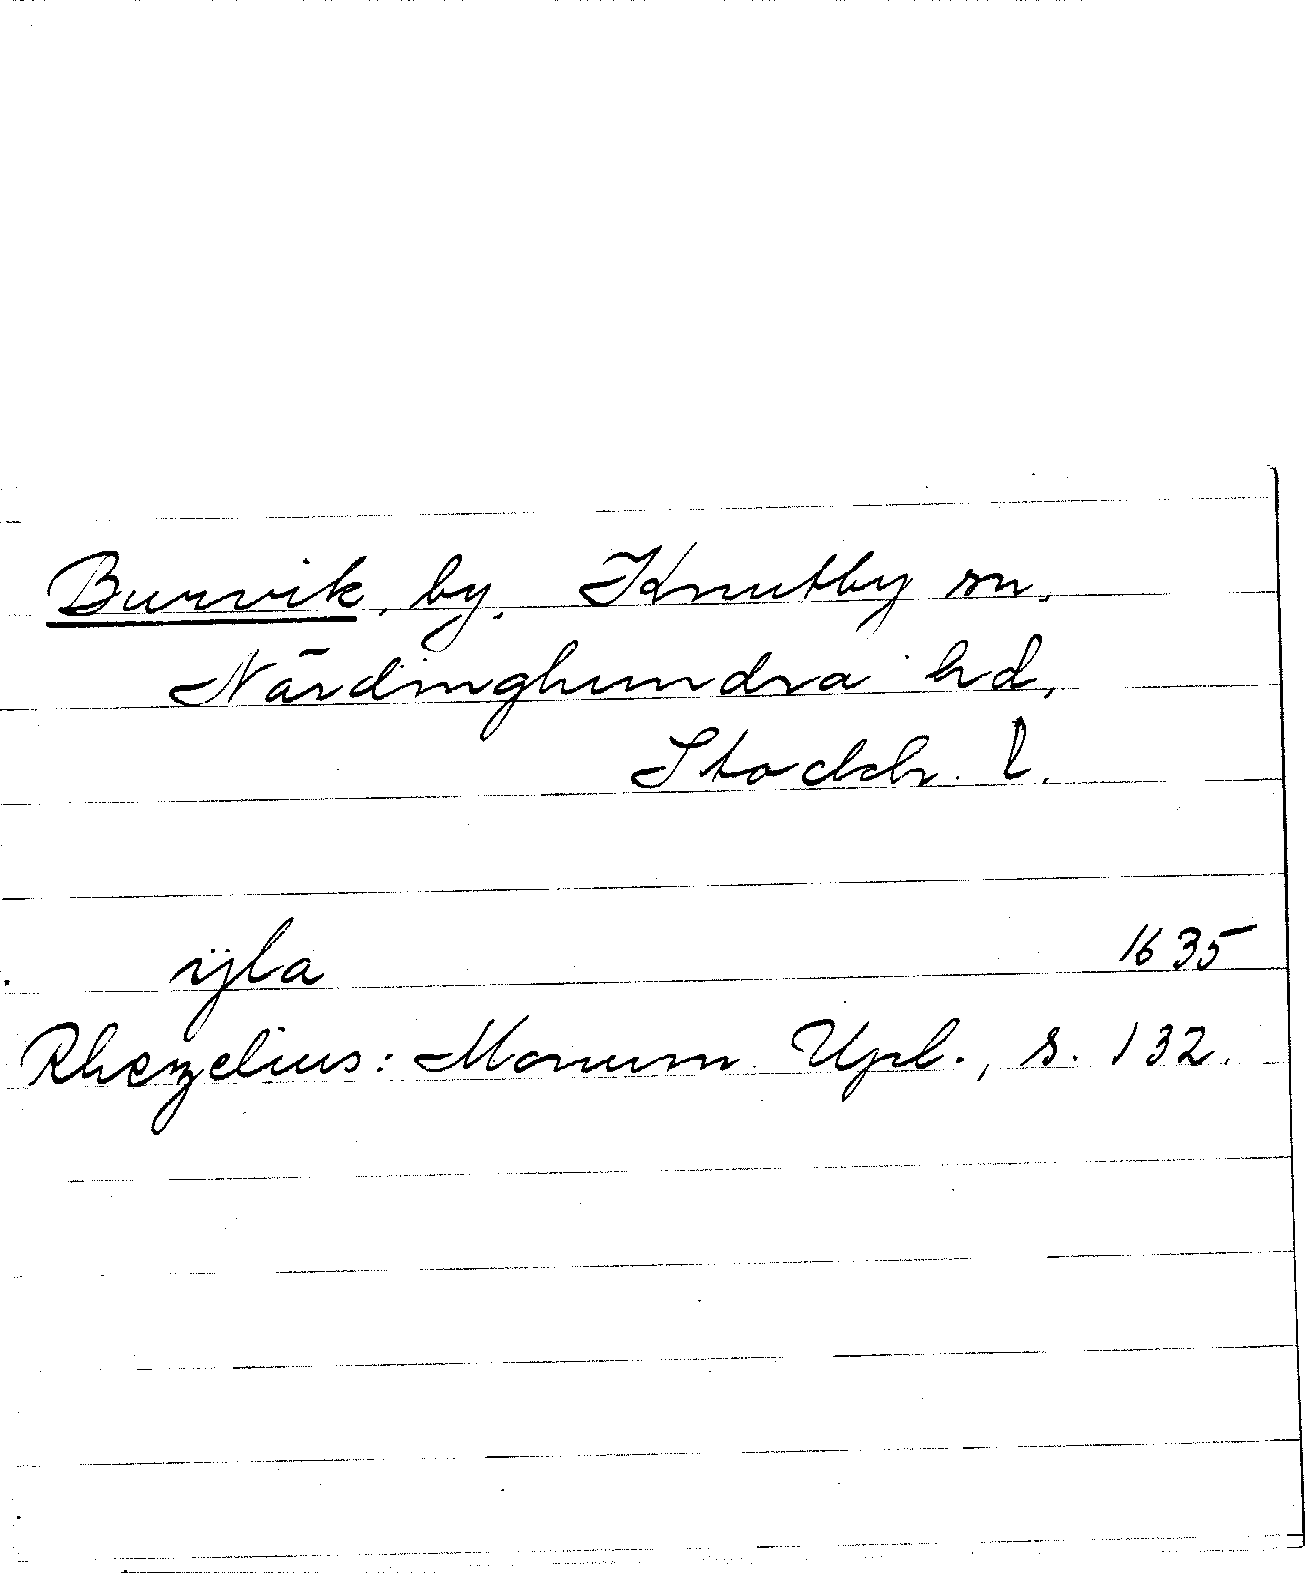 Burvik, by, Knutby sn,
Närdinghundra hd,
Stockh. l.
ÿla 1635
Rhezelius: Monum. Upl., s. 132.